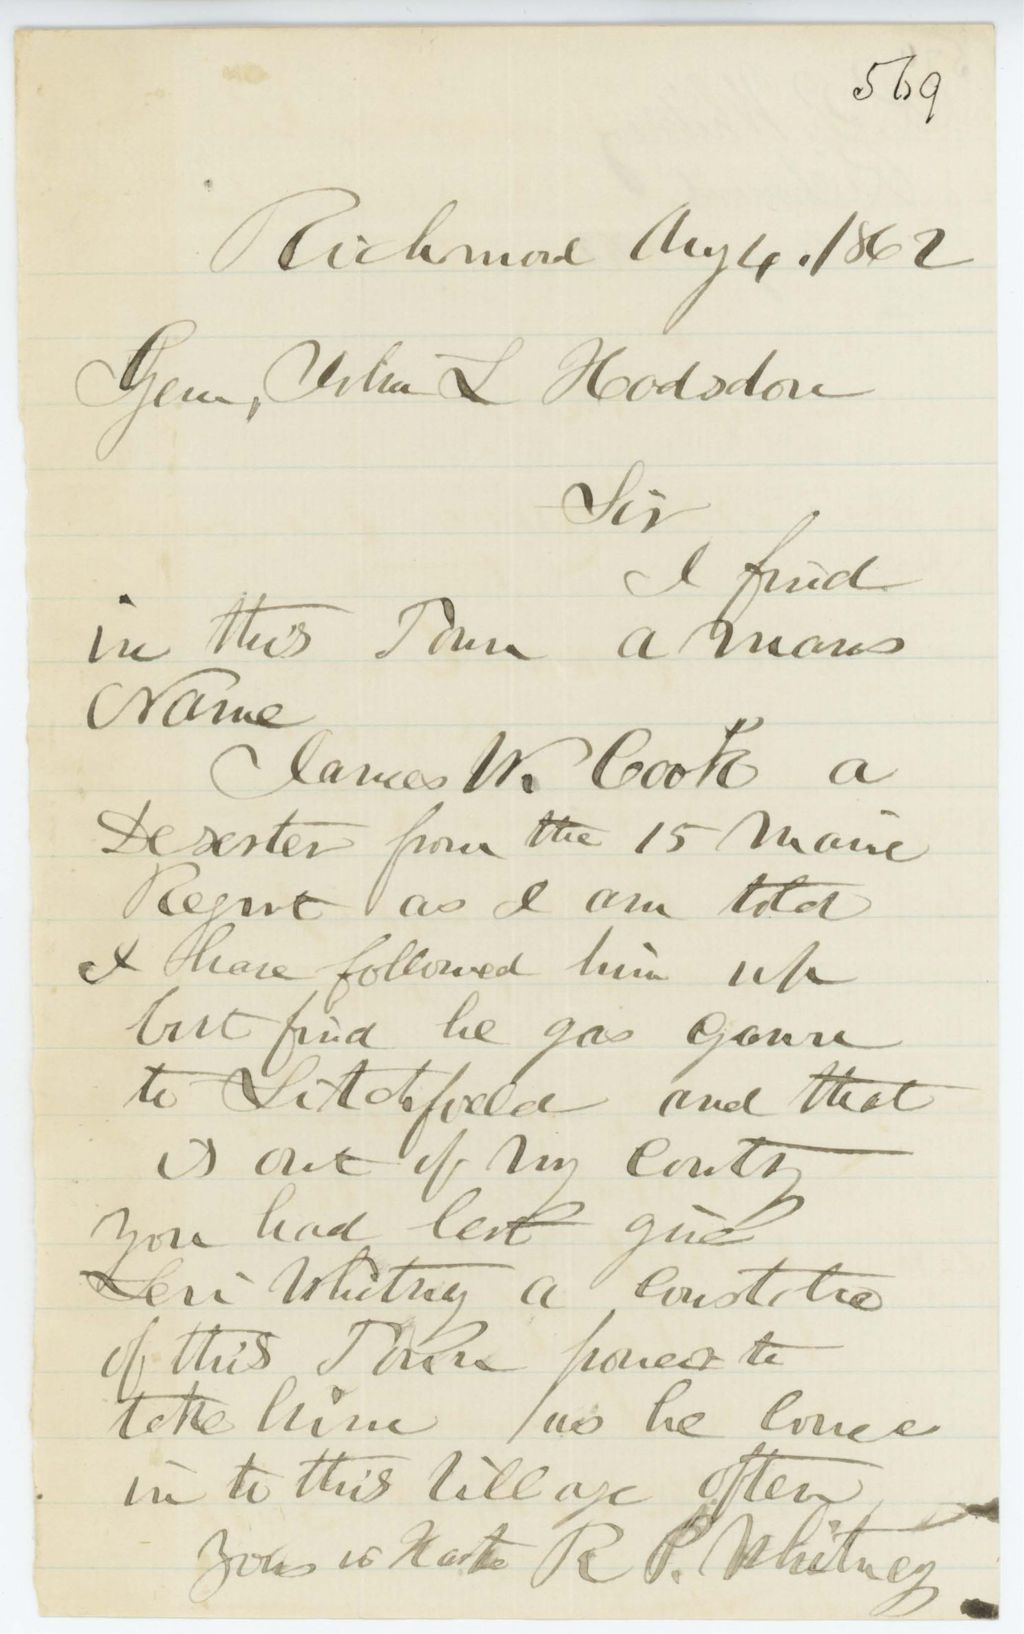 569
Richmond Aug 4. 1862
Gen, John L Hodsdon
Sir
I find
in this Town a mans
Name
James W. Cook a
Deserter from the 15 Maine
Regmt as I am told
I have followed him up
but find he gos gonn
to Litchfield and that
is out of my County
you had best give
Levi Whitney a constable
of this Town power to
take him as he come
in to this Village often
Yours in Haste R P. Whitney